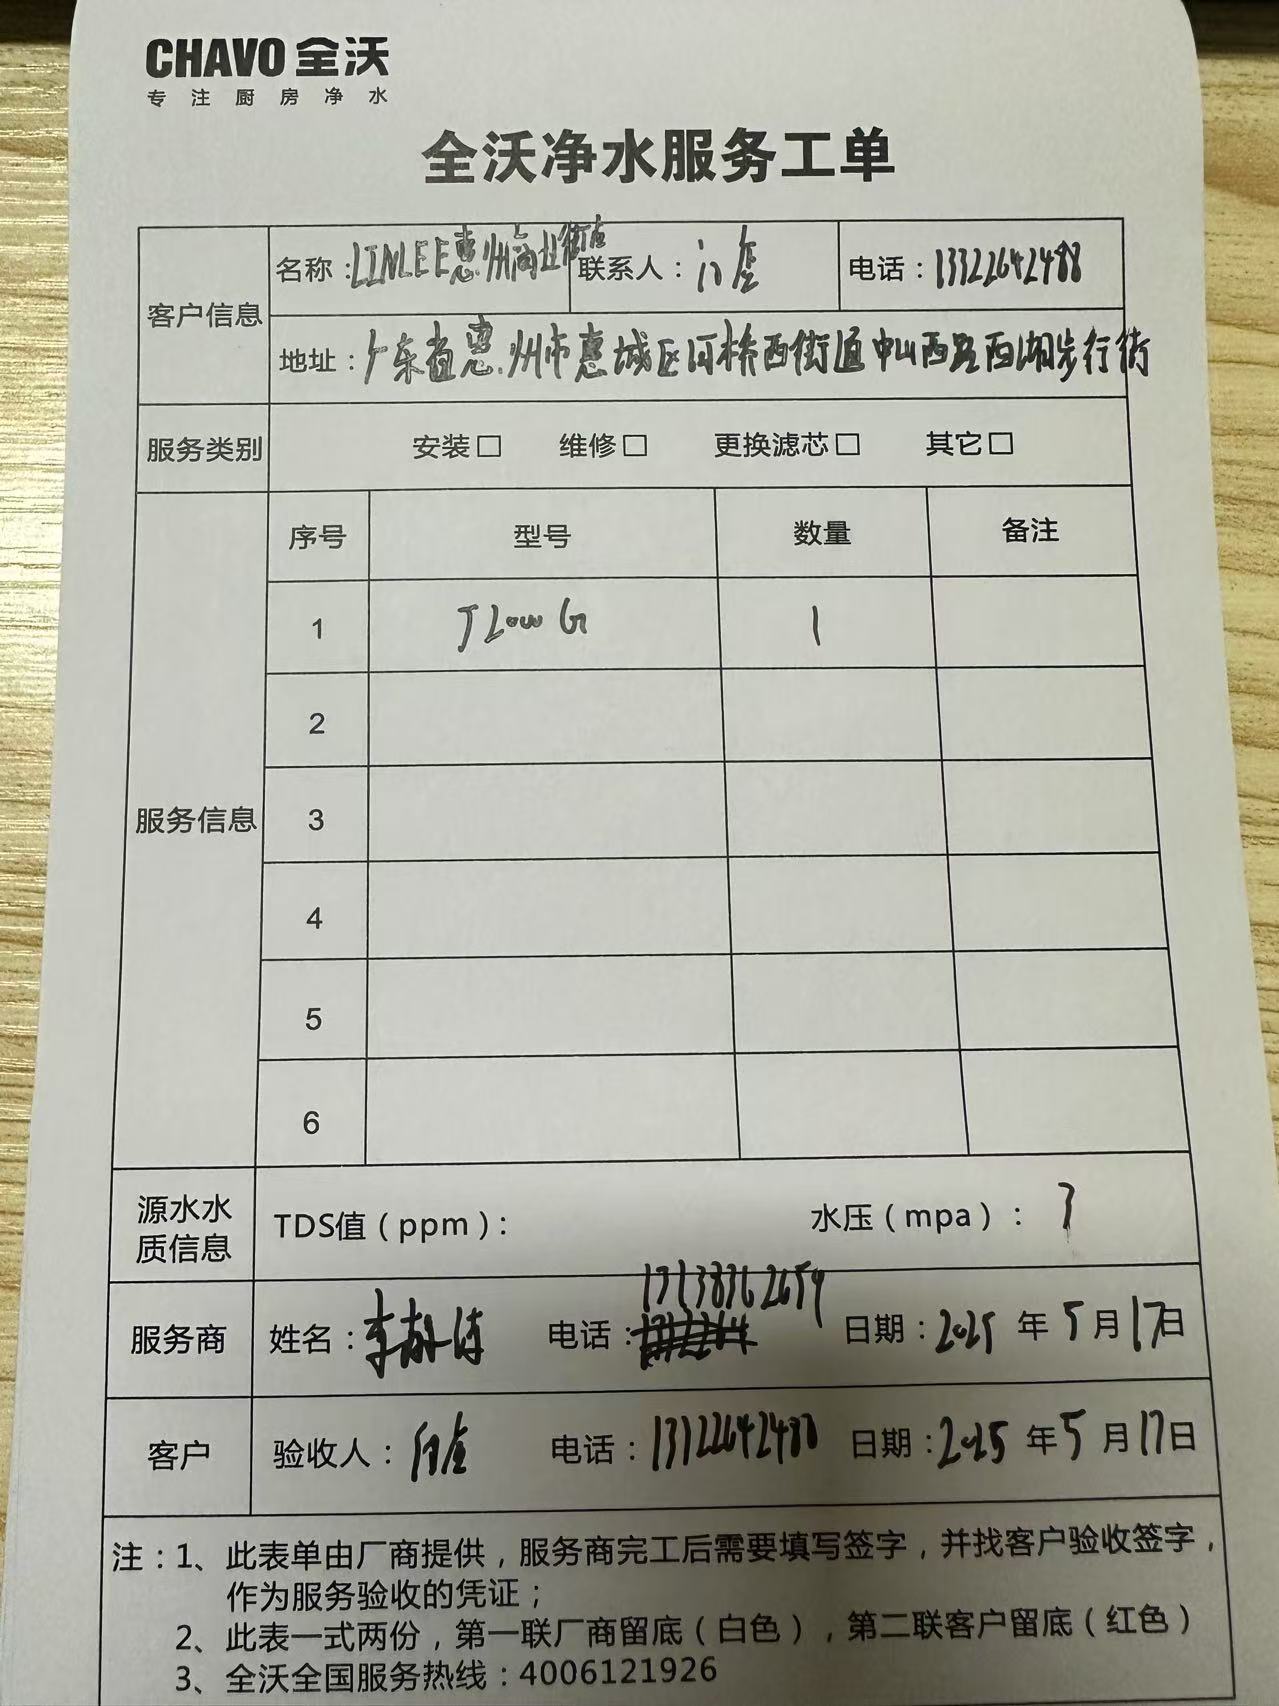 CHAVO 全沃
专注厨房净水
全沃净水服务工单
客户信息 名称:LINLEE惠州商业街店 联系人: 电话:13322642488
地址:广东省惠州市惠城区河桥西街道中山西路西湖步行街
服务类别 安装□ 维修□ 更换滤芯□ 其它□
服务信息
序号 型号 数量 备注
1 JLowG 1
2
3
4
5
6
源水水质信息 TDS值(ppm): 水压(mpa):3
服务商 姓名:李 电话: 日期:2025年5月17日
客户 验收人: 电话:13322642488 日期:2025年5月17日
注:1、此表单由厂商提供,服务商完工后需要填写签字,并找客户验收签字,
作为服务验收的凭证;
2、此表一式两份,第一联厂商留底(白色),第二联客户留底(红色)
3、全沃全国服务热线:4006121926